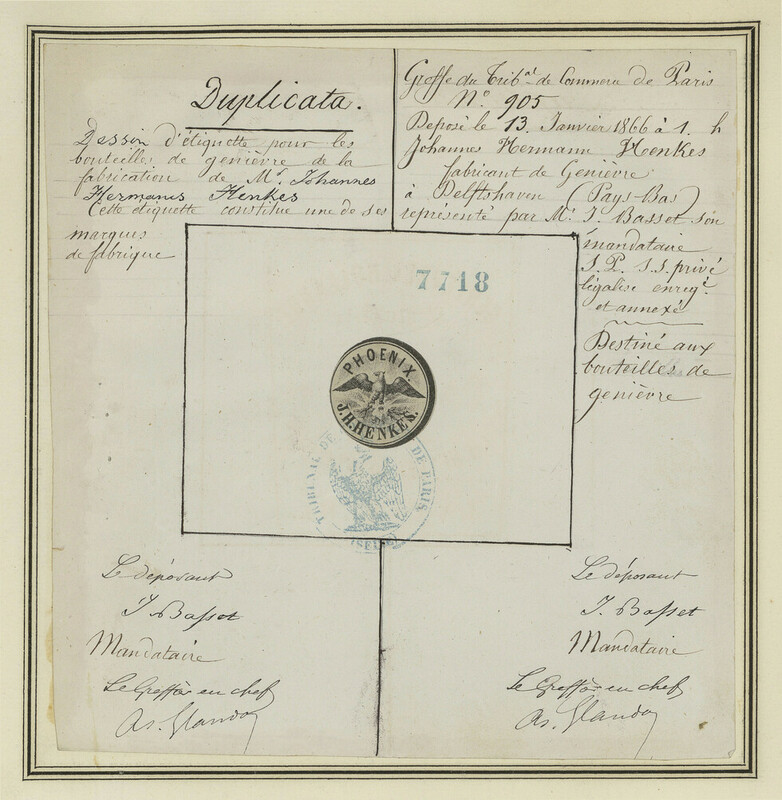 Duplicata.
Dessin d'étiquette pour les
bouteilles de genièvre de la
fabrication de Mr. Johannes
Hermanus Henkes
Cette etiquette constitue une de ses
marques
de fabrique
Greffe du Tribal de Commerce de Paris
No. 905
Deposé le 13 Janvier 1866 à 1. h
Johannes Hermann Henkes
fabricant de Genièvre
à Delftshaven (Pays-Bas)
représenté par Mr. J. Basset son
mandataire
S.P. S.S. privé
légalise enregé.
et annexé
Destiné aux
bouteilles de
genièvre
7718
PHOENIX.
J.H.HENKES.
TRIBUNAL DE DE PARIS.
(SEINE)
Le déposant
J. Basset
Mandataire
Le Greffier en chef
Le déposant
J. Basset
Mandataire
Le Greffier en chef